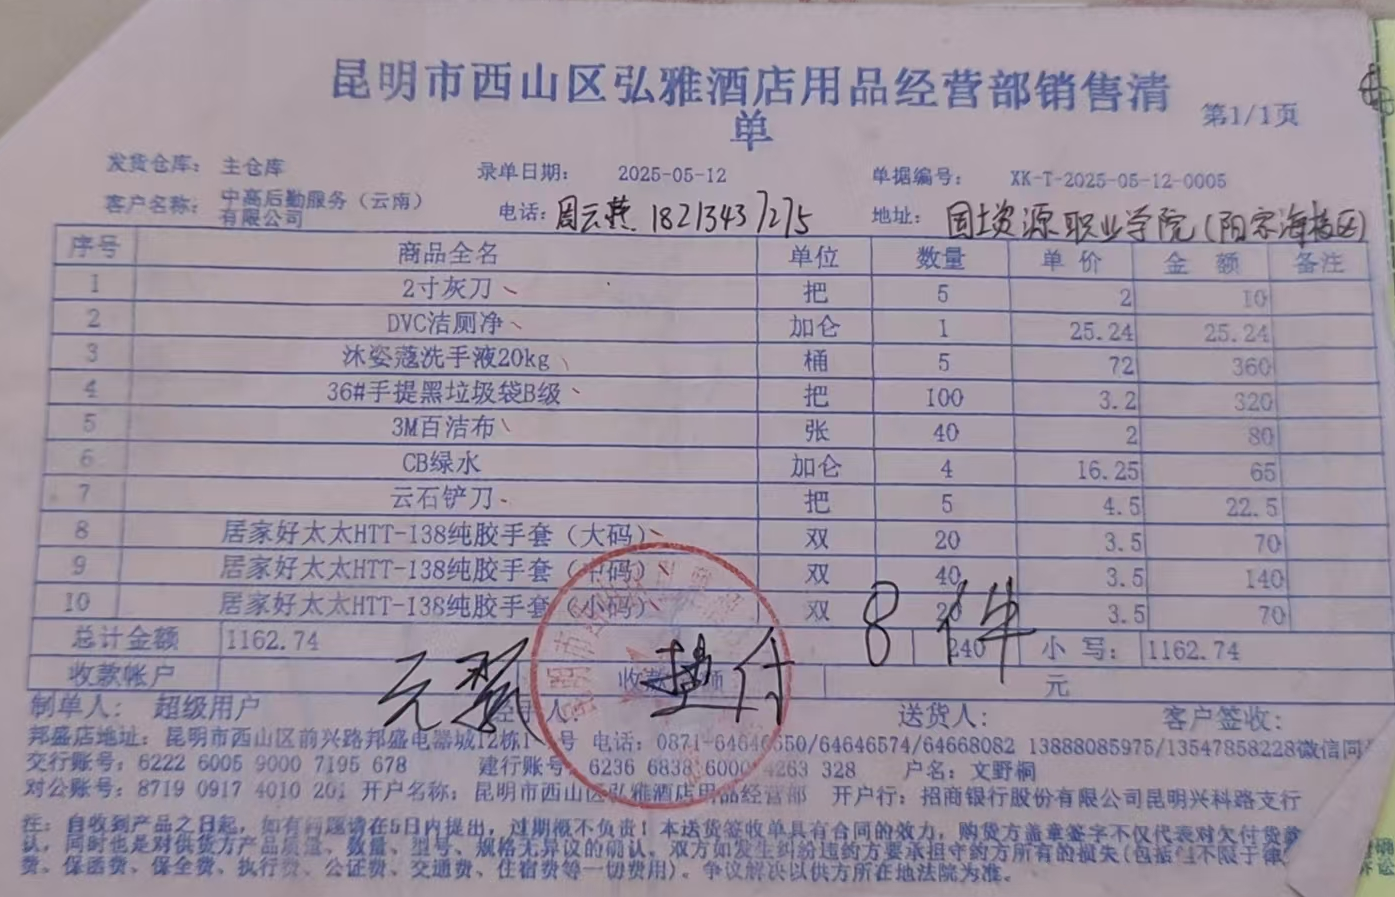 昆明市西山区弘雅酒店用品经营部销售清
单
第1/1页
发货仓库： 主仓库 录单日期： 2025-05-12 单据编号： XK-T-2025-05-12-0005
客户名称： 中高后勤服务（云南）
有限公司
电话：周云燕 18213437275 地址： 国土资源职业学院(阳宗海校区)
序号 商品全名 单位 数量 单 价 金 额 备注
1 2寸灰刀 把 5 2 10
2 DVC洁厕净 加仑 1 25.24 25.24
3 沐姿蔻洗手液20kg 桶 5 72 360
4 36#手提黑垃圾袋B级 把 100 3.2 320
5 3M百洁布 张 40 2 80
6 CB绿水 加仑 4 16.25 65
7 云石铲刀 把 5 4.5 22.5
8 居家好太太HTT-138纯胶手套（大码） 双 20 3.5 70
9 居家好太太HTT-138纯胶手套（中码） 双 40 3.5 140
10 居家好太太HTT-138纯胶手套（小码） 双 20 3.5 70
8件
总计金额 1162.74 240 小 写： 1162.74
收款帐户 收款 额 元
垫付
制单人： 超级用户 经 人： 送货人： 客户签收：
邦盛店地址：昆明市西山区前兴路邦盛电器城12栋1 号 电话：0871-64646550/64646574/64668082 13888085975/13547858228微信同
交行账号：6222 6005 9000 7195 678 建行账号：6236 6838 6000 4263 328 户名：文野桐
对公账号：8719 0917 4010 201 开户名称：昆明市西山区弘雅酒店用品经营部 开户行：招商银行股份有限公司昆明兴科路支行
注：自收到产品之日起，如有问题请在5日内提出，过期概不负责！本送货签收单具有合同的效力，购货方盖章签字不仅代表对欠付货款
认，同时也是对供货方产品质量、数量、型号、规格无异议的确认。双方如发生纠纷违约方要承担守约方所有的损失(包括但不限于律
费、保函费、保全费、执行费、公证费、交通费、住宿费等一切费用)。争议解决以供方所在地法院为准。